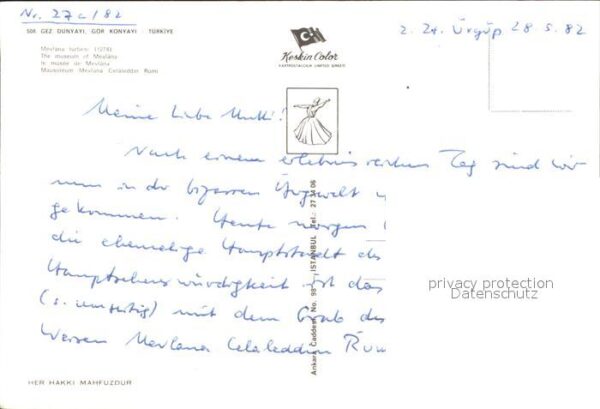 Nr. 27c/82
z. Zt. Ürgüp 28.5.82
508 GEZ DÜNYAYI, GÖR KONYAYI TÜRKİYE
Mevlâna türbesi (1274)
The museum of Mevlâna
le musée de Mevlâna
Mausoleum Mevlana Celâleddar Rumi
Keskin Color
KARTPOSTALCILIK LIMITED ŞİRKETİ
Meine liebe Mutti!
Nach einem erlebnisreichen Tag sind wir
nun in der bizarren
gekommen. Heute morgen
die ehemalige Hauptstadt des
Hauptsehenswürdigkeit ist das
(s. umseitig) mit dem Grab des
Weisen Mevlana Celaleddin Rum
Ankara Caddesi, No. 98 - İSTANBUL Tel.: 27 34 06
privacy protection
Datenschutz
HER HAKKI MAHFUZDUR